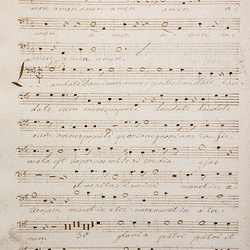 men amen amen amen amen a
men a men a men a
men amen amen.
Laudate Dominum omnes gentes laudate
date eum omnes populi laudate lauda te
eum omnes populi quoniam quoniam confir
mata est super nos misericordia ejus
et veritas Domini manet in a
ternum manet in æter num manet in æter
num 34 gloria patri patri et